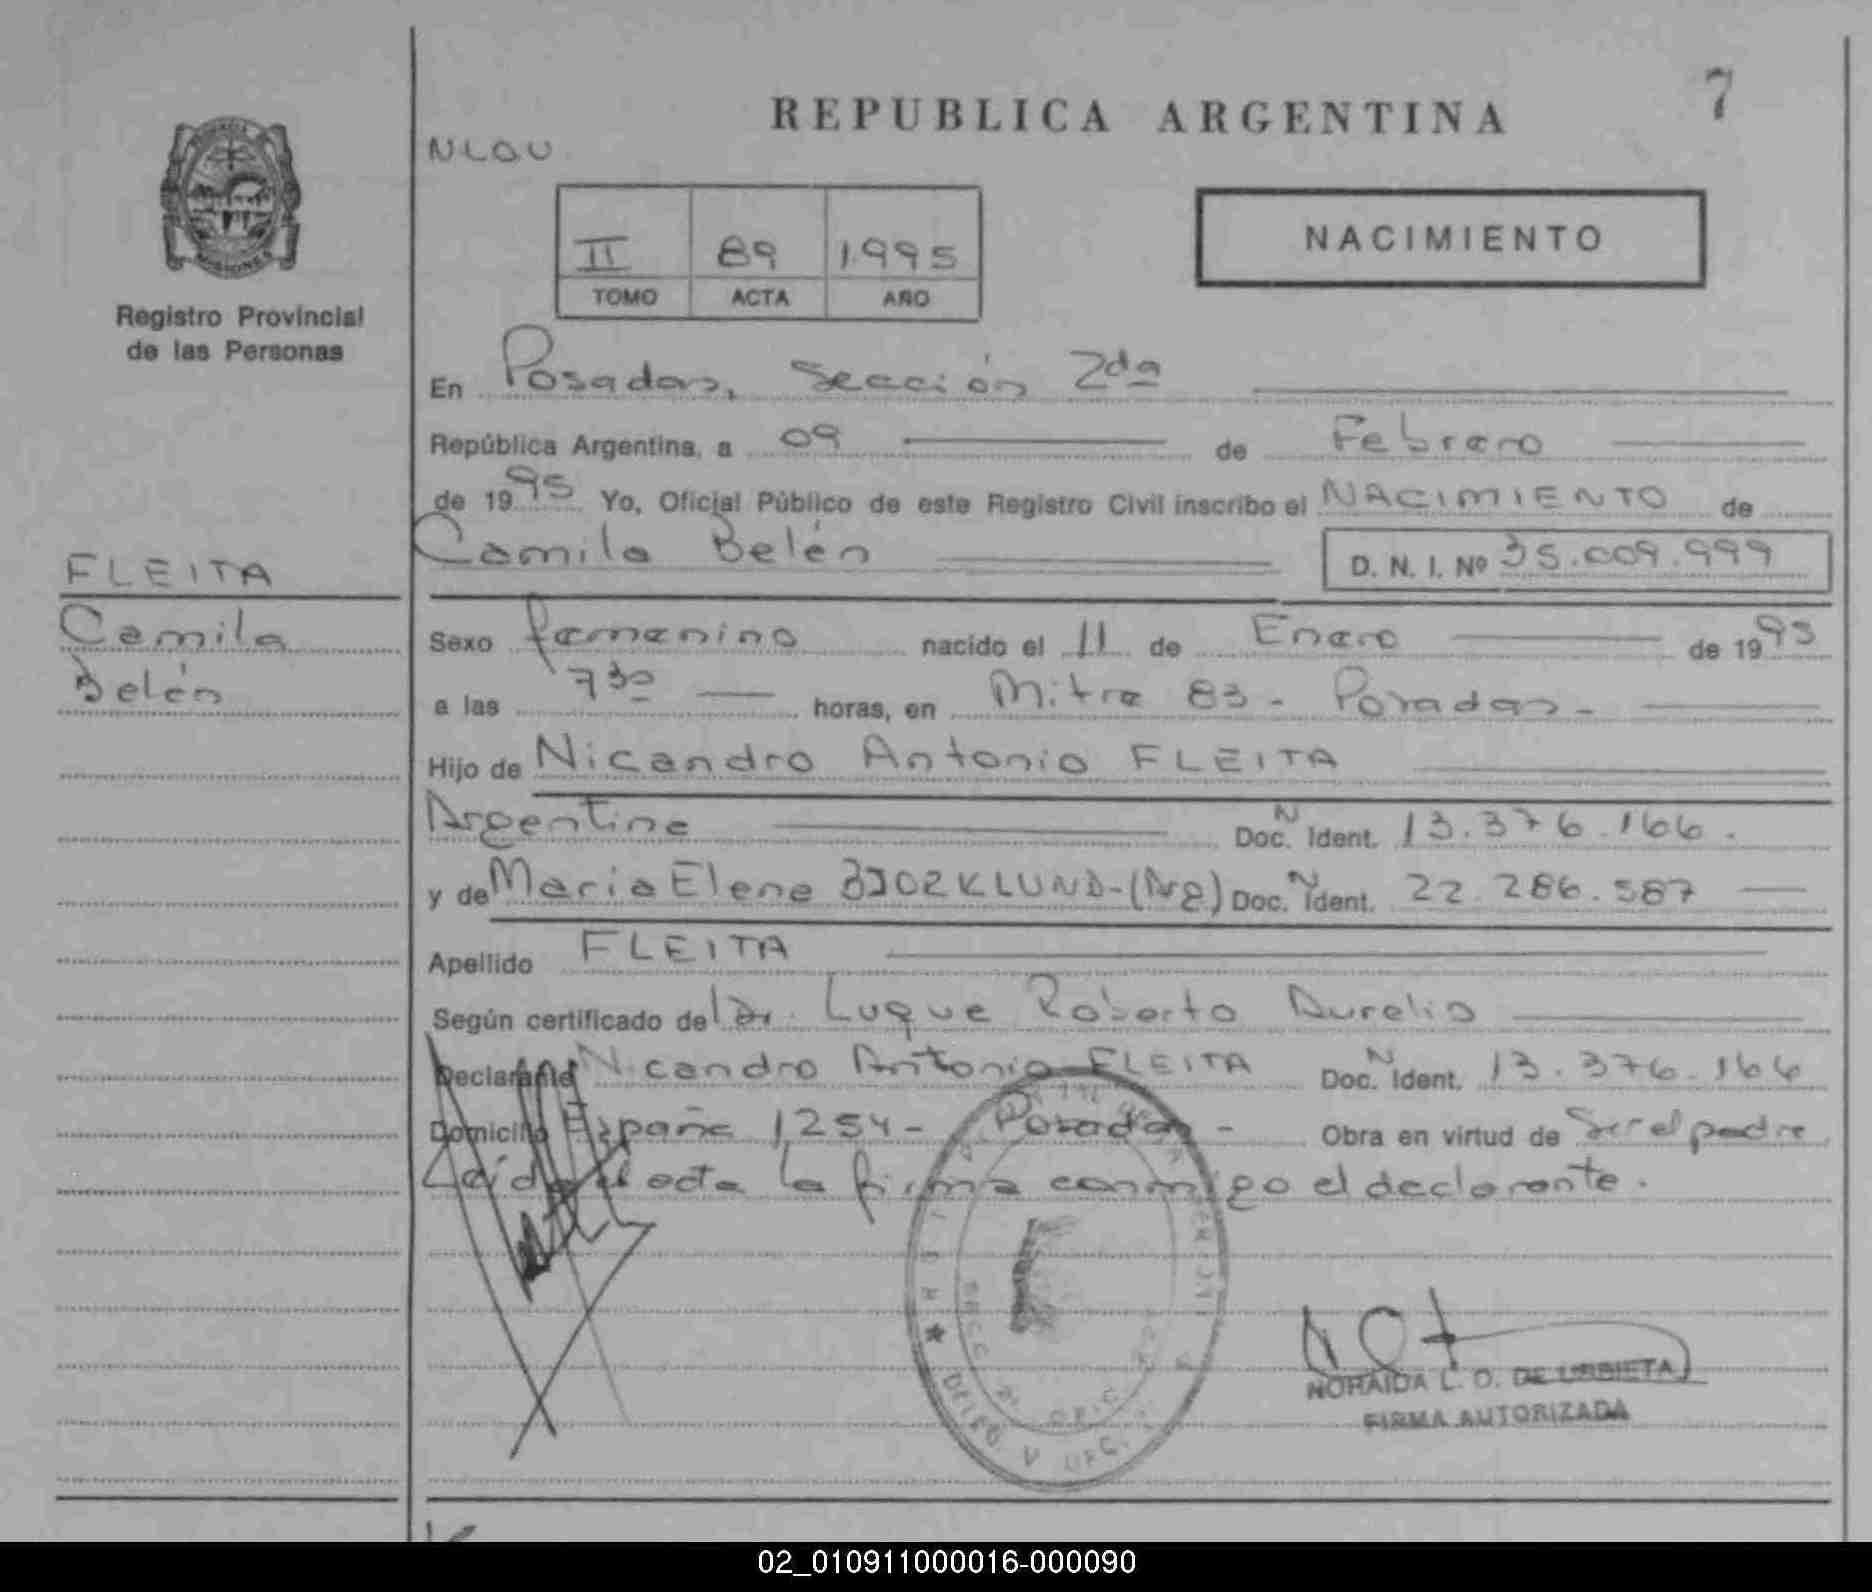 REPUBLICA ARGENTINA
7
NLOU
MISIONES
Registro Provincial
de las Personas
II 89 1.995
TOMO ACTA AÑO
NACIMIENTO
En Posadas, Sección 2da
República Argentina, a 09 de Febrero
de 1995 Yo, Oficial Público de este Registro Civil inscribo el NACIMIENTO de
Camila Belén D. N. I. Nº 35.009.999
FLEITA
Camila
Belén
Sexo femenino nacido el 11 de Enero de 1995
a las 7 30 horas, en Mitre 83 - Posadas -
Hijo de Nicandro Antonio FLEITA
Argentina Doc. N Ident. 13.376.166.
y de Maria Elena BJORKLUND - (Arg) Doc. N Ident. 22.286.587
Apellido FLEITA
Según certificado del Dr. Luque Roberto Aurelio
Declarante Nicandro Antonio FLEITA Doc. N Ident. 13.376.166
Domicilio España 1254 - Posadas - Obra en virtud de Ser el padre
Leída el acta la firma conmigo el declarante.
NORAIDA L. O. DE URBIETA
FIRMA AUTORIZADA
02_010911000016-000090